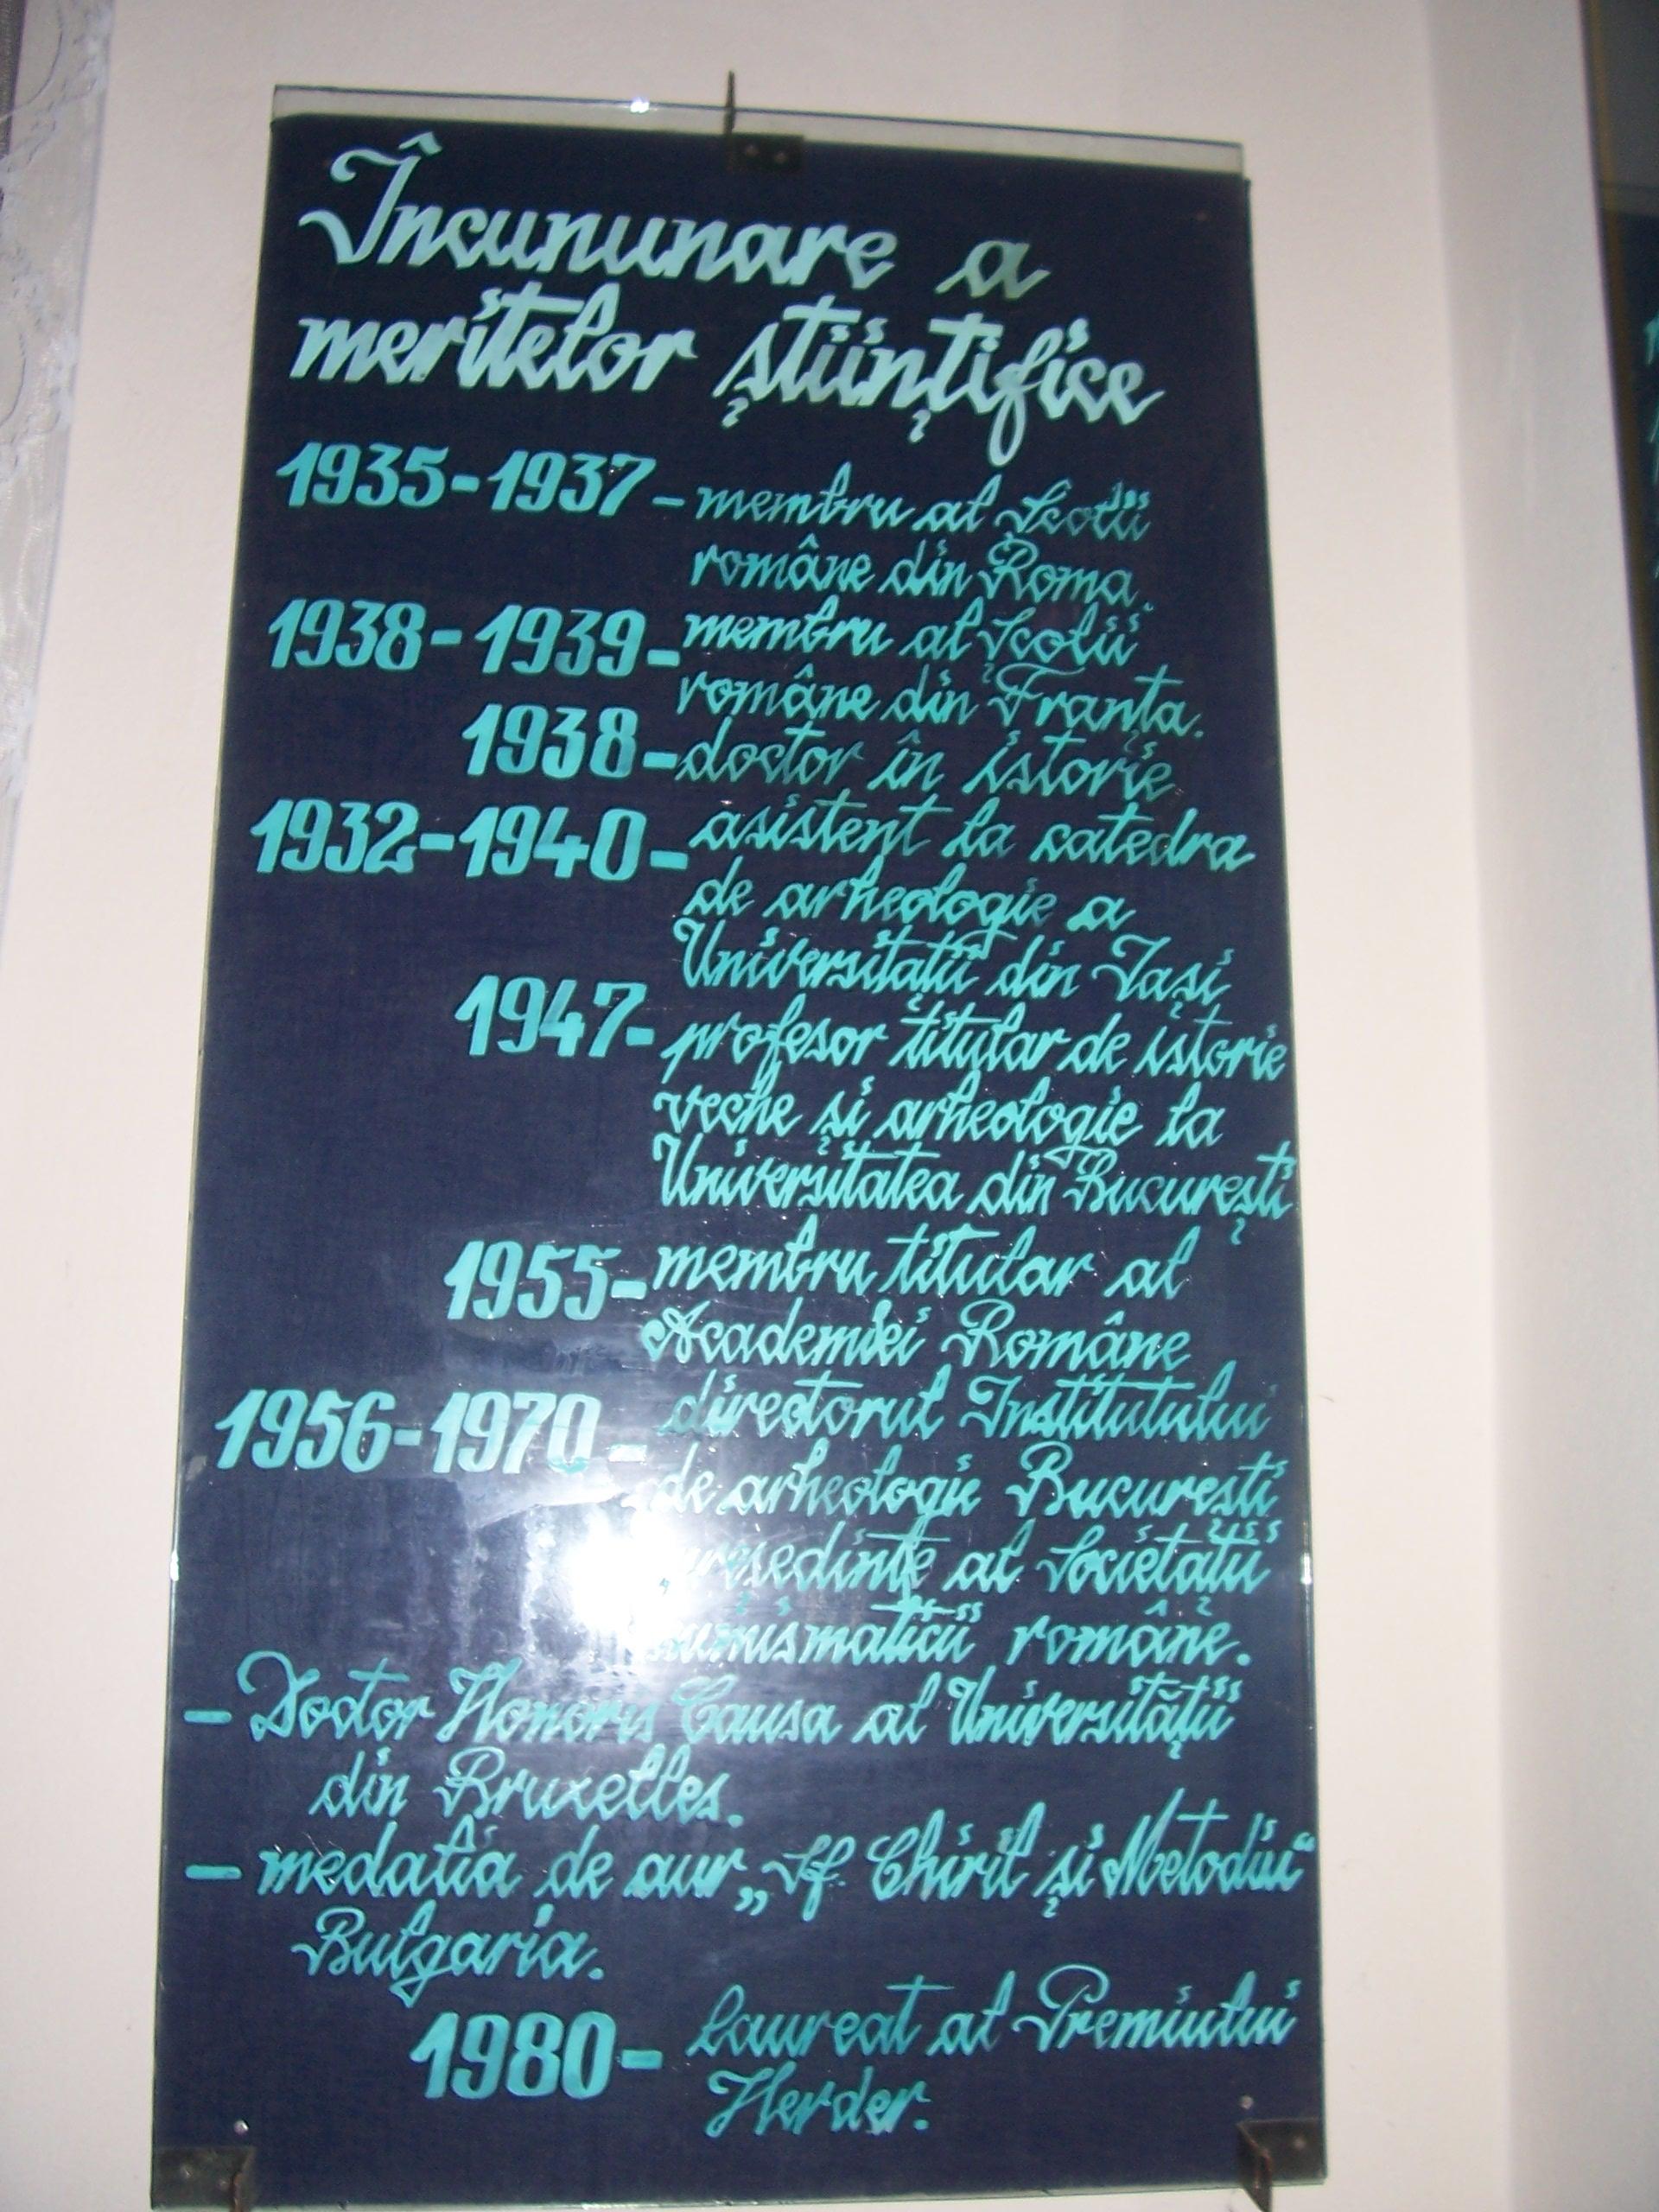 Încununare a
meritelor științifice
1935-1937 - membru al Școlii
române din Roma.
1938-1939 - membru al Școlii
române din Franța.
1938 - doctor în istorie
1932-1940 - asistent la catedra
de arheologie a
Universitații din Iași
1947 - profesor titular de istorie
veche și arheologie la
Universitatea din București
1955 - membru titular al
Academiei Române
1956-1970 - directorul Institutului
de arheologie București
președinte al Societații
numismaticii române.
- Doctor Honoris Causa al Universității
din Bruxelles.
- medalia de aur „Sf. Chiril și Metodiu"
Bulgaria.
1980 - laureat al Premiului
Herder.